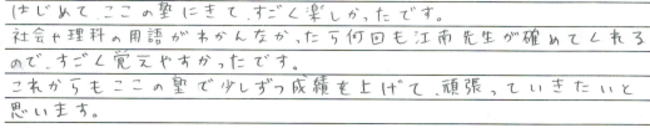 はじめて、ここの塾にきて、すごく楽しかったです。
社会や理科の用語がわかんなかったら何回も江南先生が確めてくれる
ので、すごく覚えやすかったです。
これからもここの塾で少しずつ成績を上げて、頑張っていきたいと
思います。